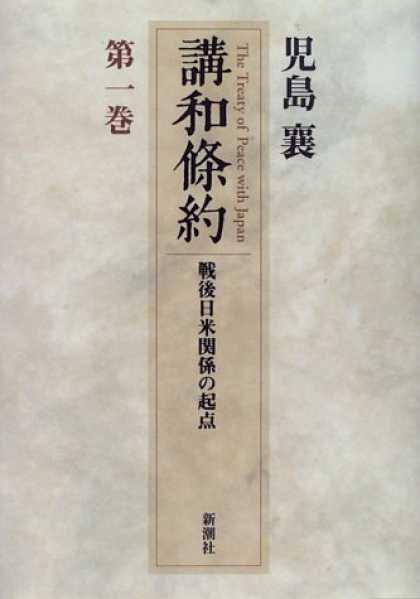 児島襄
The Treaty of Peace with Japan
講和條約
戦後日米関係の起点
第一巻
新潮社